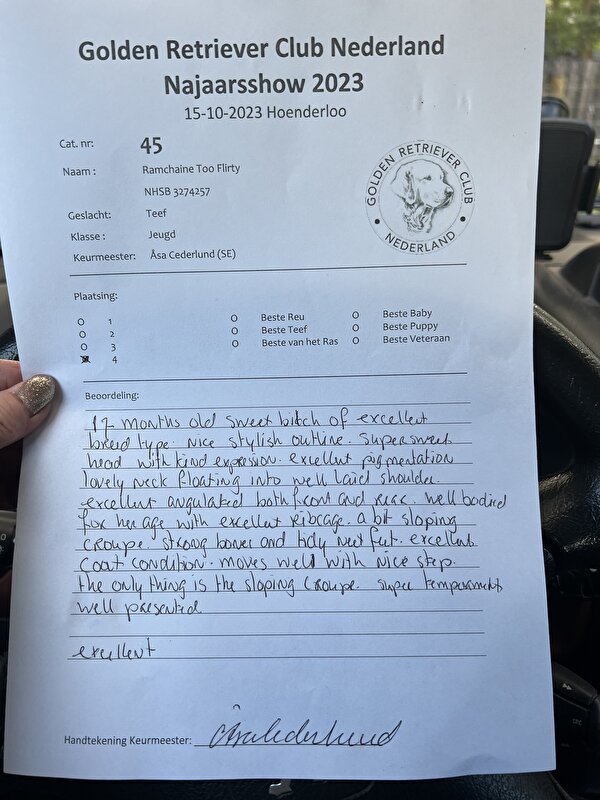 Golden Retriever Club Nederland
Najaarsshow 2023
15-10-2023 Hoenderloo
Cat. nr: 45
Naam : Ramchaine Too Flirty
NHSB 3274257
Geslacht: Teef
Klasse : Jeugd
Keurmeester: Åsa Cederlund (SE)
GOLDEN RETRIEVER CLUB
• NEDERLAND •
Plaatsing:
O 1 O Beste Reu O Beste Baby
O 2 O Beste Teef O Beste Puppy
O 3 O Beste van het Ras O Beste Veteraan
4
Beoordeling:
17 months old sweet bitch of excellent
breed type. Nice stylish outline. Supersweet
head with kind expresion. excellent pigmentation
lovely neck floating into well laid shoulder.
excellent angulated both front and rear. well bodied
for her age with excellent ribcage. a bit sloping
croupe. strong bones and tidy neet feet. excellent
coat condition. moves well with nice step.
the only thing is the sloping croupe. super temperament
well presented
excellent
Handtekening Keurmeester: Åsa Cederlund